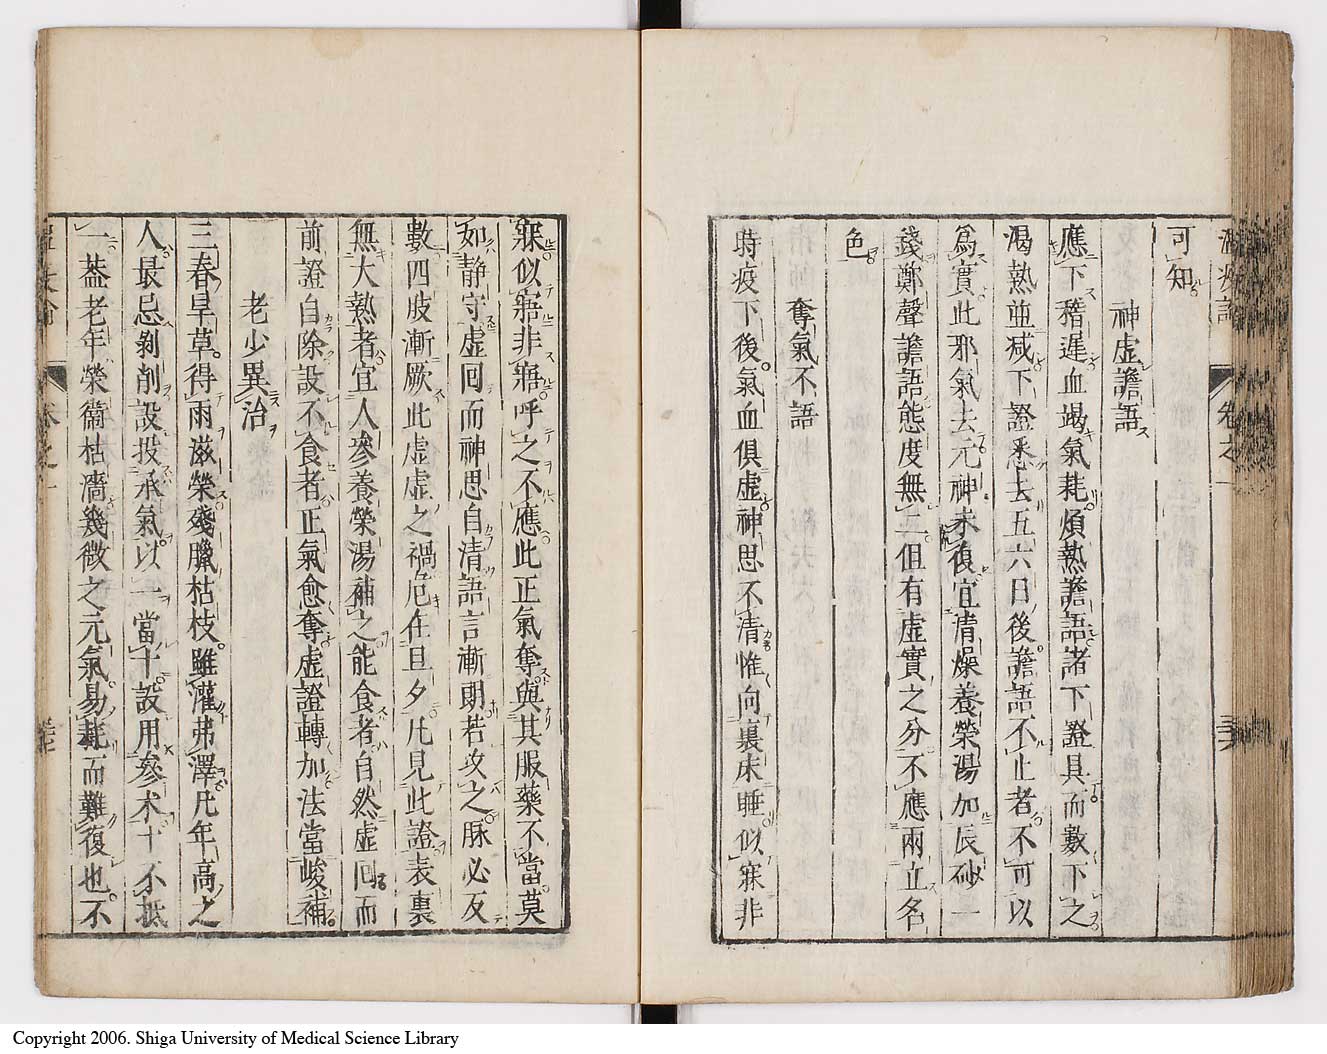 可知
神虚譫語
應下稽遲血竭氣耗煩熱譫語諸下證具而數下之
渴熱並减下證悉去五六日後譫語不止者不可以
爲實此邪氣去元神未復宜清燥養榮湯加辰砂一
錢鄭聲譫語態度無二但有虚實之分不應兩立名
色
奪氣不語
時疫下後氣血俱虚神思不清惟向裏床睡似寐非
寐似寤非寤呼之不應此正氣奪與其服藥不當莫
如静守虚回而神思自清語言漸朗若攻之脉必反
數四肢漸厥此虚虚之禍危在旦夕凡見此證表裏
無大熱者宜人參養榮湯補之能食者自然虚回而
前證自除設不食者正氣愈奪虚證轉加法當峻補
老少異治
三春旱草得雨滋榮殘臘枯枝雖灌弗澤凡年高之
人最忌剝削設投承氣以一當十設用參术十不抵
一葢老年榮衞枯濇幾微之元氣易耗而難復也不
卷之一
Copyright 2006. Shiga University of Medical Science Library